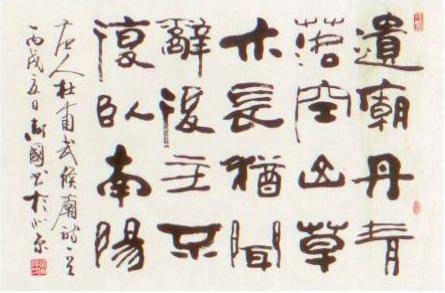 遺廟丹青
落空山草
木長猶聞
辭後主不
復臥南陽
唐人杜甫武侯廟詩一首
丙戌夏日國书於北京